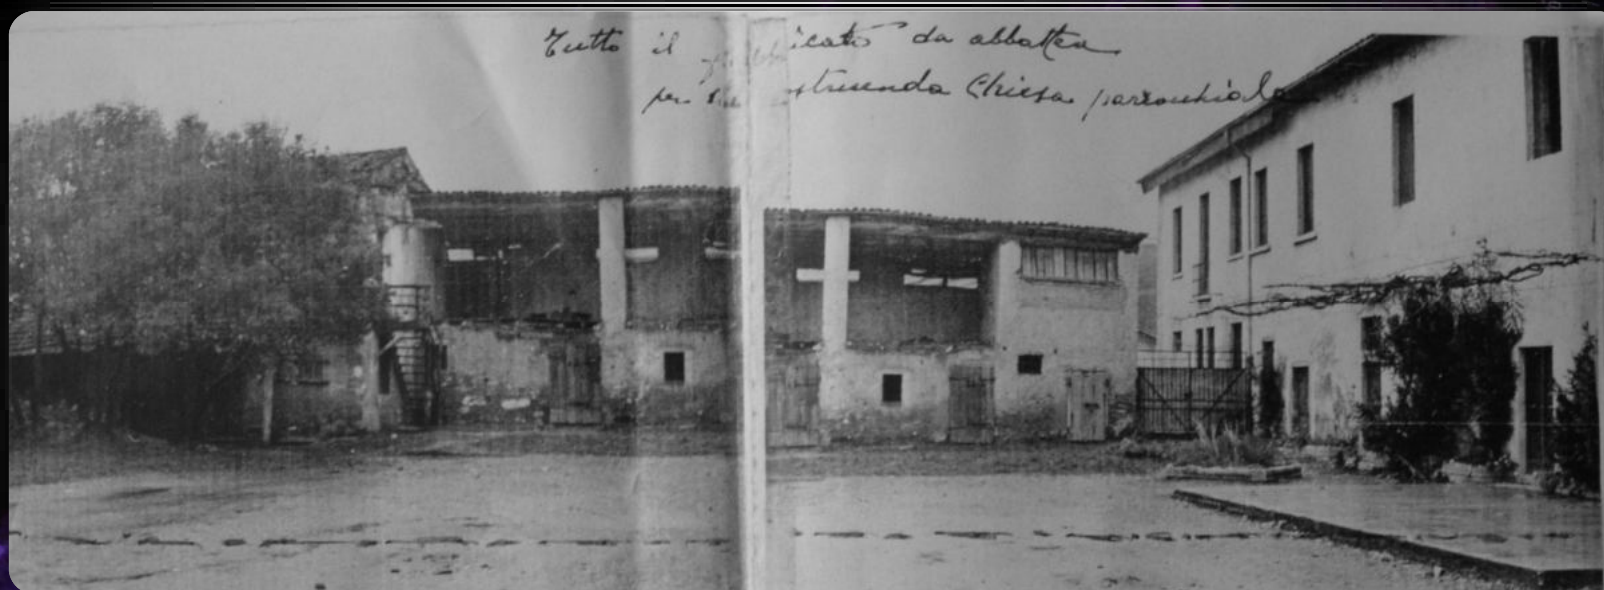 Tutto il fabbricato da abbattere
per la costruenda Chiesa parrocchiale